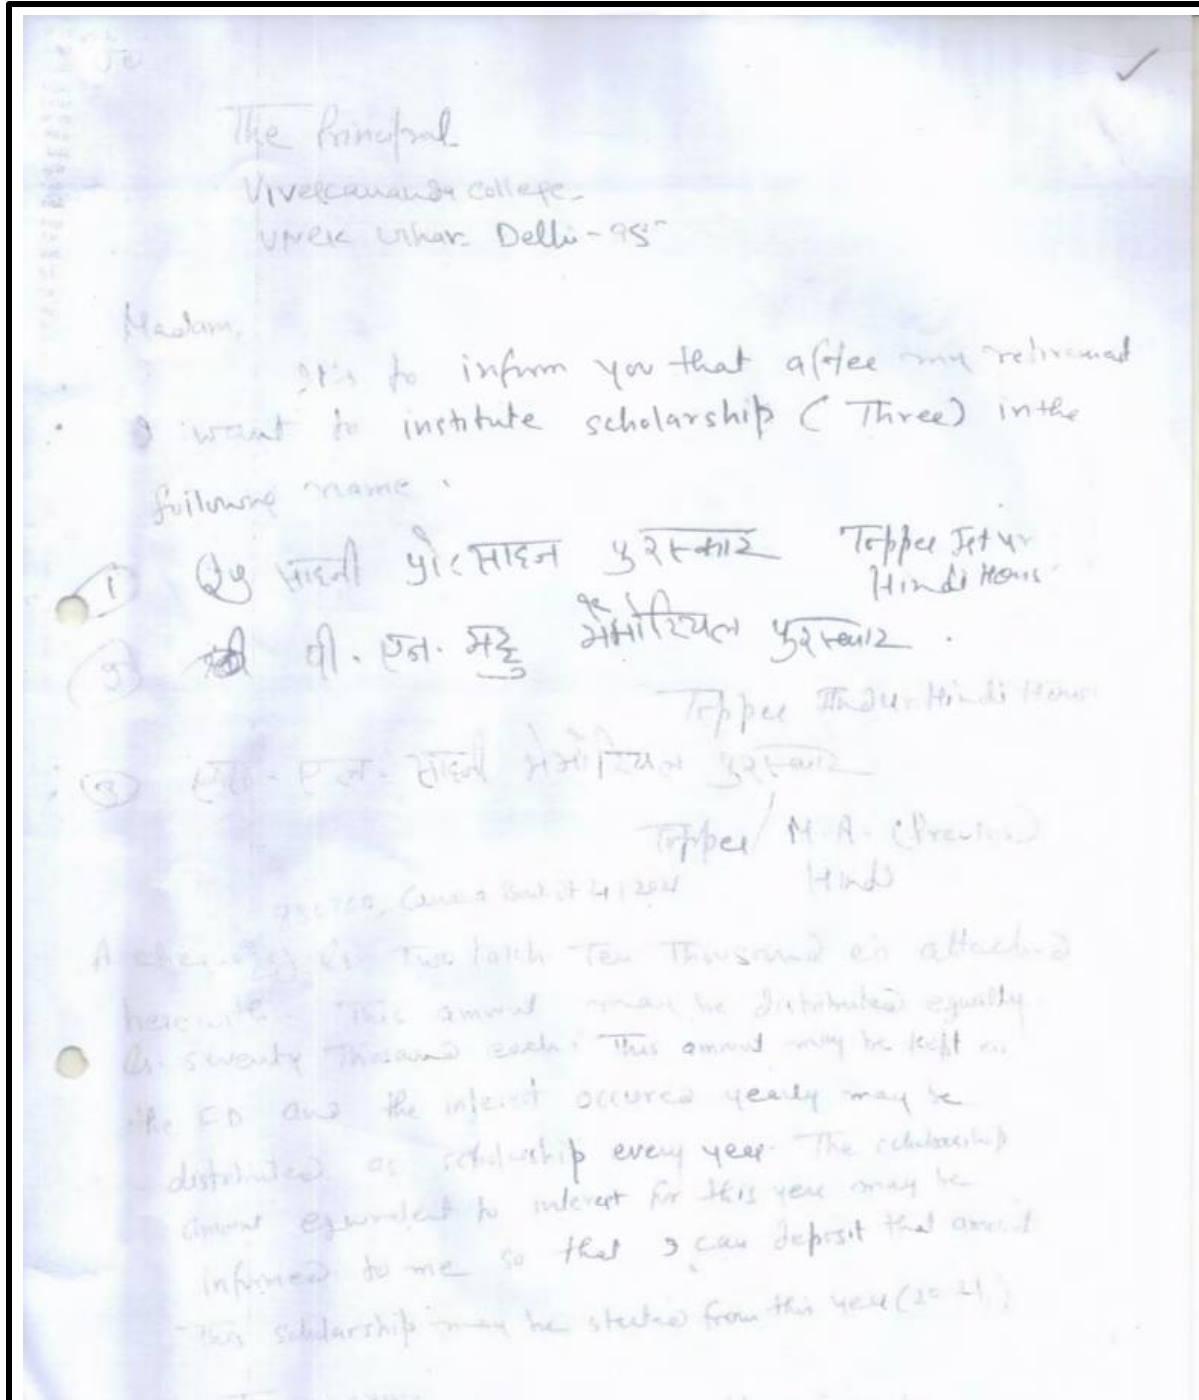 To
The Principal
Vivekananda College
Vivek Vihar Delhi-95
Madam,
It is to inform you that after my retirement
I want to institute scholarship (Three) in the
following name.
1 साहनी प्रोत्साहन पुरस्कार Topper Ist yr
Hindi Hons
पी. एन. मट्टू मेमोरियल पुरस्कार.
Topper IInd yr Hindi Hons
3 एन. साहनी मेमोरियल पुरस्कार
Topper M.A. (Previous)
Hindi
A Two lakh Ten Thousand is attached
herewith. This amount may be distributed equally
seventy Thousand each. This amount may be kept in
the FD and the interest occured yearly may be
distributed as scholarship every year. The scholarship
amount equivalent to interest for this year may be
informed to me so that I can deposit that amount
This scholarship may be started from this year